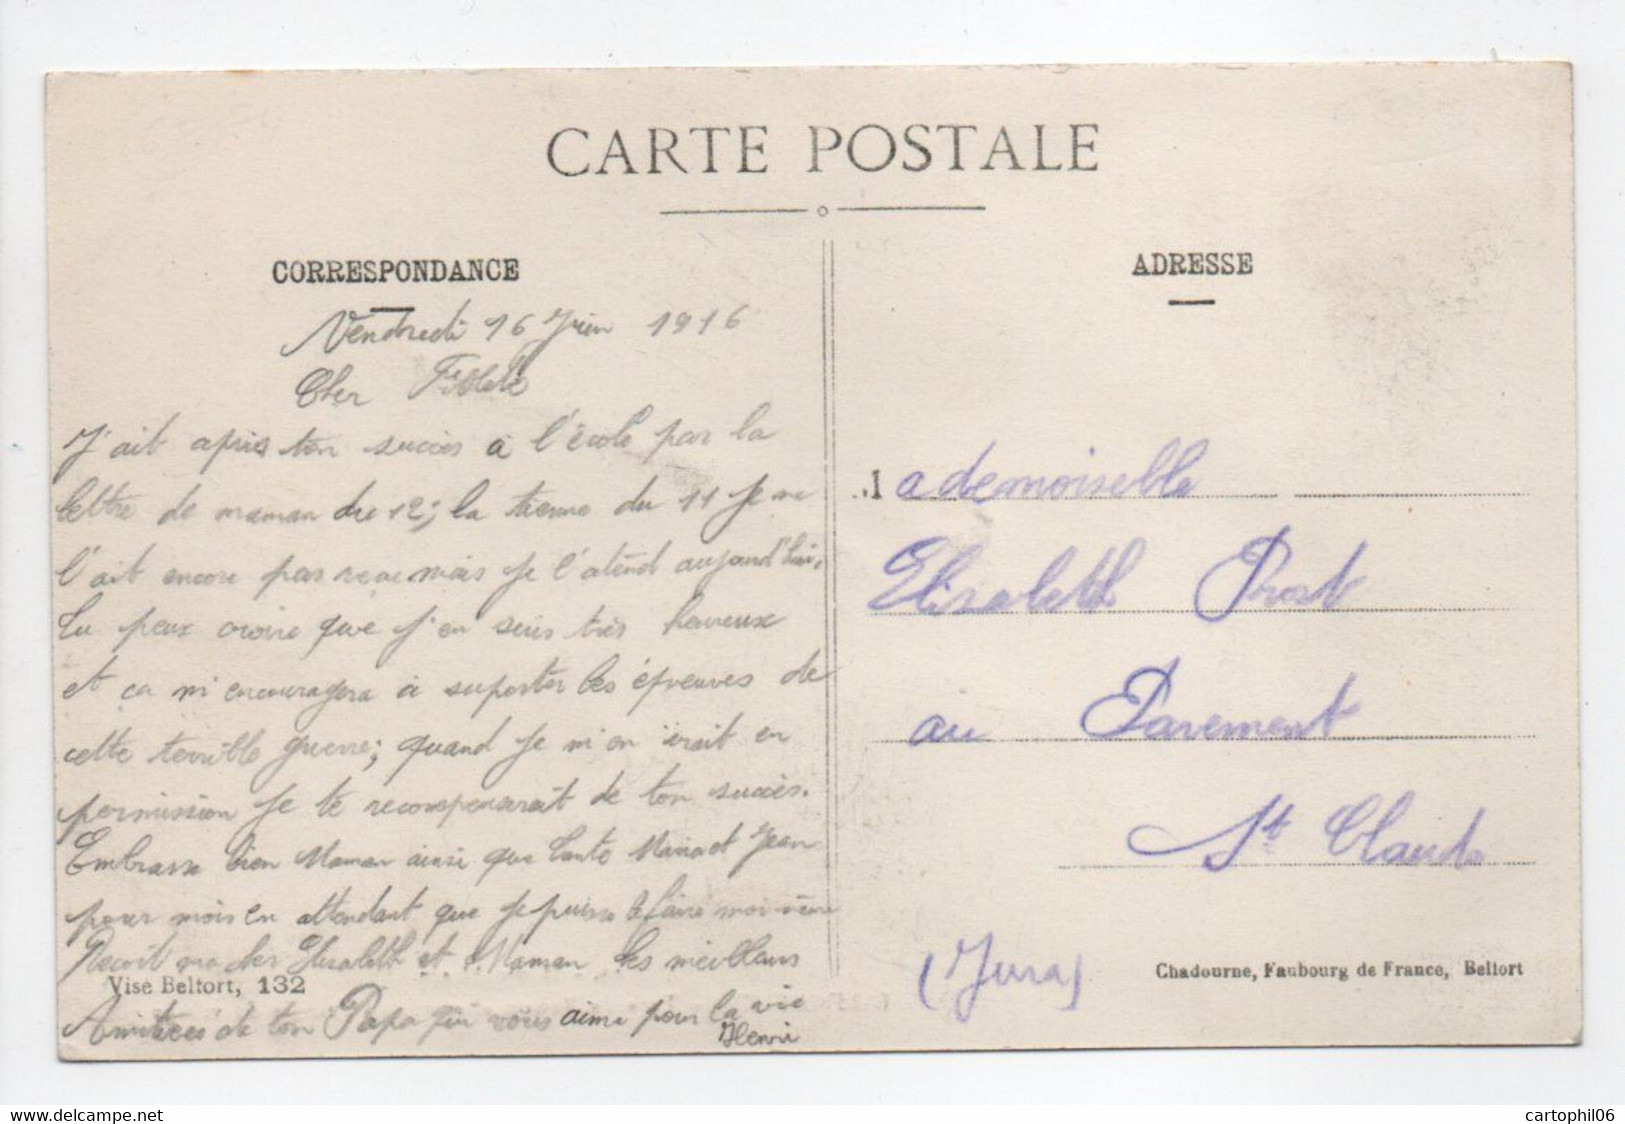 CARTE POSTALE
CORRESPONDANCE
Vendredi 16 Juin 1916
Cher Fillete
J'ait apris ton succès a l'école par la
lettre de maman du 12; la tienne du 11 Je ne
l'ait encore pas reçue mais je l'atend aujourd'hui.
tu peux croire que j'en suis très heureux
et ca m'encouragera à suporter les épreuves de
cette terrible guerre; quand je m'en irait en
permission je te recompenserait de ton succès.
Embrasse bien Maman ainsi que tante Maria et Jean
pour mois en attendant que je puisse le faire moi-même
Reçoit ma cher Elisabeth et Maman les meilleurs
Visé Belfort, 132
Amitiées de ton Papa qui vous aime pour la vie
Henri
ADRESSE
Mademoiselle
Elisabeth Prost
au Parement
St Claude
(Jura)
Chadourne, Faubourg de France, Belfort
cartophil06
www.delcampe.net